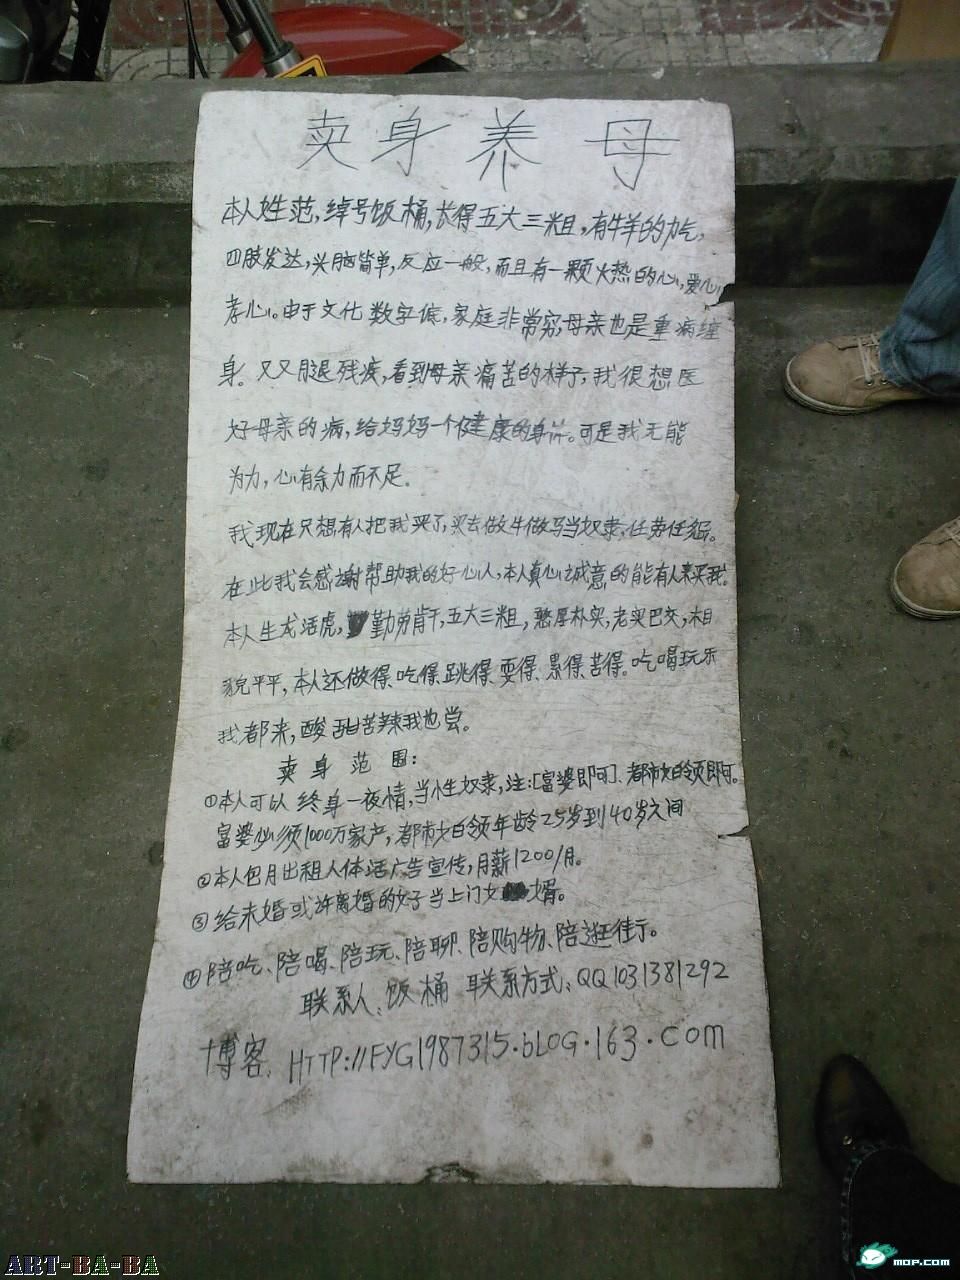 卖身养母
本人姓范,绰号饭桶,长得五大三粗,有牛羊的力气,
四肢发达,头脑简单,反应一般,而且有一颗火热的心,爱心,
孝心。由于文化数字低,家庭非常穷,母亲也是重病缠
身。又又腿残疾,看到母亲痛苦的样子,我很想医
好母亲的病,给妈妈一个健康的身体。可是我无能
为力,心有余力而不足。
我现在只想有人把我买了,买去做牛做马当奴隶,任劳任怨。
在此我会感谢帮助我的好心人,本人真心诚意的能有人来买我。
本人生龙活虎,勤劳肯干,五大三粗,憨厚朴实,老实巴交,相
貌平平,本人还做得、吃得、跳得、耍得、累得、苦得。吃喝玩乐
我都来,酸甜苦辣我也尝。
卖身范围:
①本人可以终身一夜情,当性奴隶,注:[富婆即可]、都市女白领即可。
富婆必须1000万家产,都市女白领年龄25岁到40岁之间
②本人包月出租人体活广告宣传,月薪1200/月。
③给未婚或许离婚的女子当上门女婿。
④陪吃、陪喝、陪玩、陪聊、陪购物、陪逛街。
联系人:饭桶 联系方式:QQ1031381292
博客:HTTP://FYG1987315.bLOG.163.com
ART-BA-BA
MOP.COM